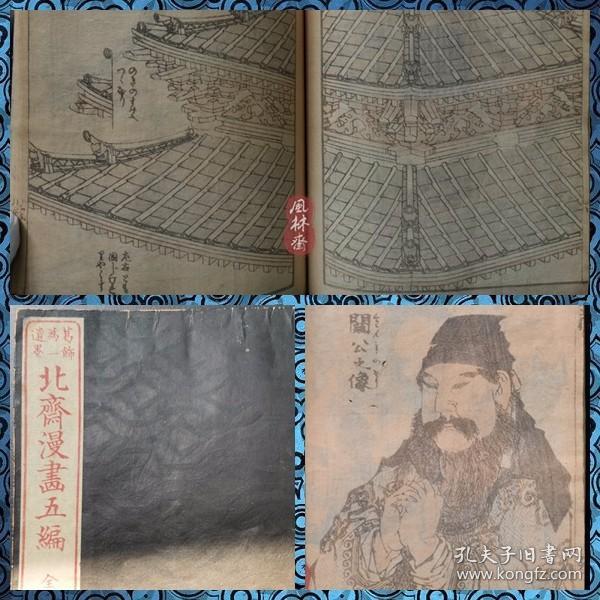 のきのすみ
つくり
風林斎
葛飾
為一
遺墨
北齋漫畫五編
全
關公之像
孔夫子旧書网
www.kongfz.com